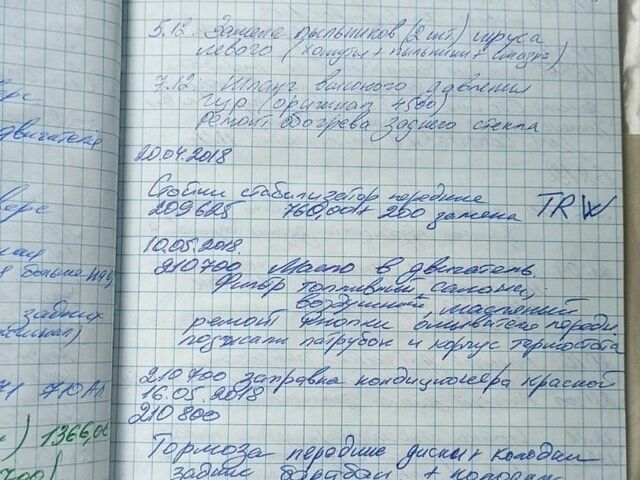 5.12. Замена пыльников (2 шт) шруса
левого (хомуты + пыльники + смазка)
7.12. Шланг высокого давления
гур (оригинал 4500)
ремонт обогрева заднего стекла
20.04.2018
Стойки стабилизатор передние
209625 760,00+ 200 замена TRW
10.05.2018
210700 Масло в двигатель.
Фильтр топливный, салона,
воздушный, масляный
ремонт кнопки омывателя передн
подтжали патрубок и корпус термостата
210700 заправка кондиционера красной
16.05.2018
210800
Тормоза передние диски+ колодки
задние барабан + колодки
верс
двигателя
верс
больше
задних
710
) 1366,00
700)